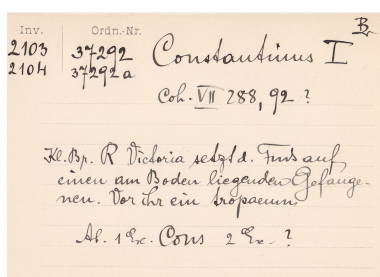 B.
Inv. Ordn.-Nr.
2103 37292 Constantinus I
2104 37292a
Coh. VII 288, 92 ?
Kl. Br. R Victoria setzt d. Fuß auf
einen am Boden liegenden Gefange-
nen. Vor ihr ein tropaeum
1 Ex. Cons 2 Ex. ?